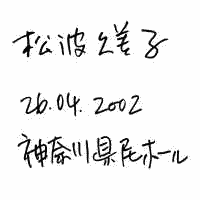 松波
26.04.2002
神奈川県民ホール